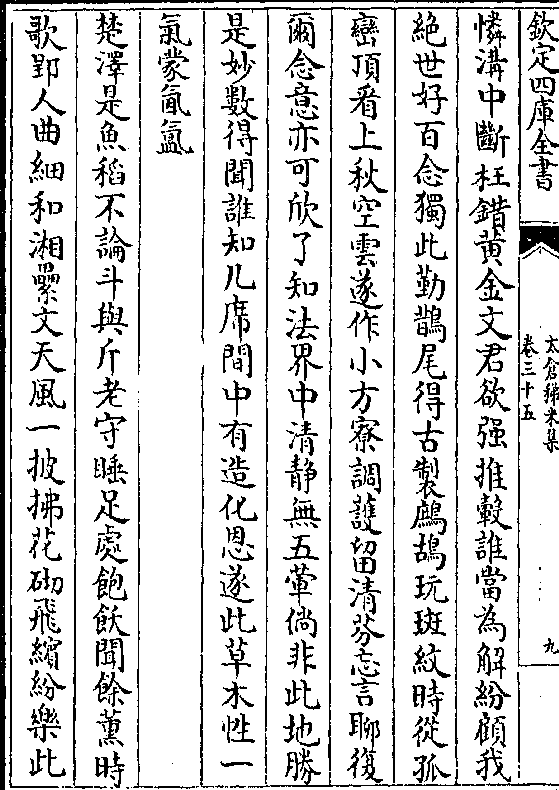 欽定四庫全書
太倉稊米集
卷三十五
九
憐溝中斷枉錯黄金文君欲强推轂誰當為解紛顧我
絶世好百念獨此勤鵲尾得古製鷓鴣玩斑紋時從孤
巒頂看上秋空雲遂作小方寮調護留清芬忘言聊復
爾念意亦可欣了知法界中清静無五葷倘非此地勝
是妙數得聞誰知几席間中有造化恩遂此草木性一
氣蒙氤氲
楚澤是魚稻不論斗與斤老守睡足處飽飫聞餘薰時
歌郢人曲細和湘纍文天風一披拂花砌飛繽紛樂此